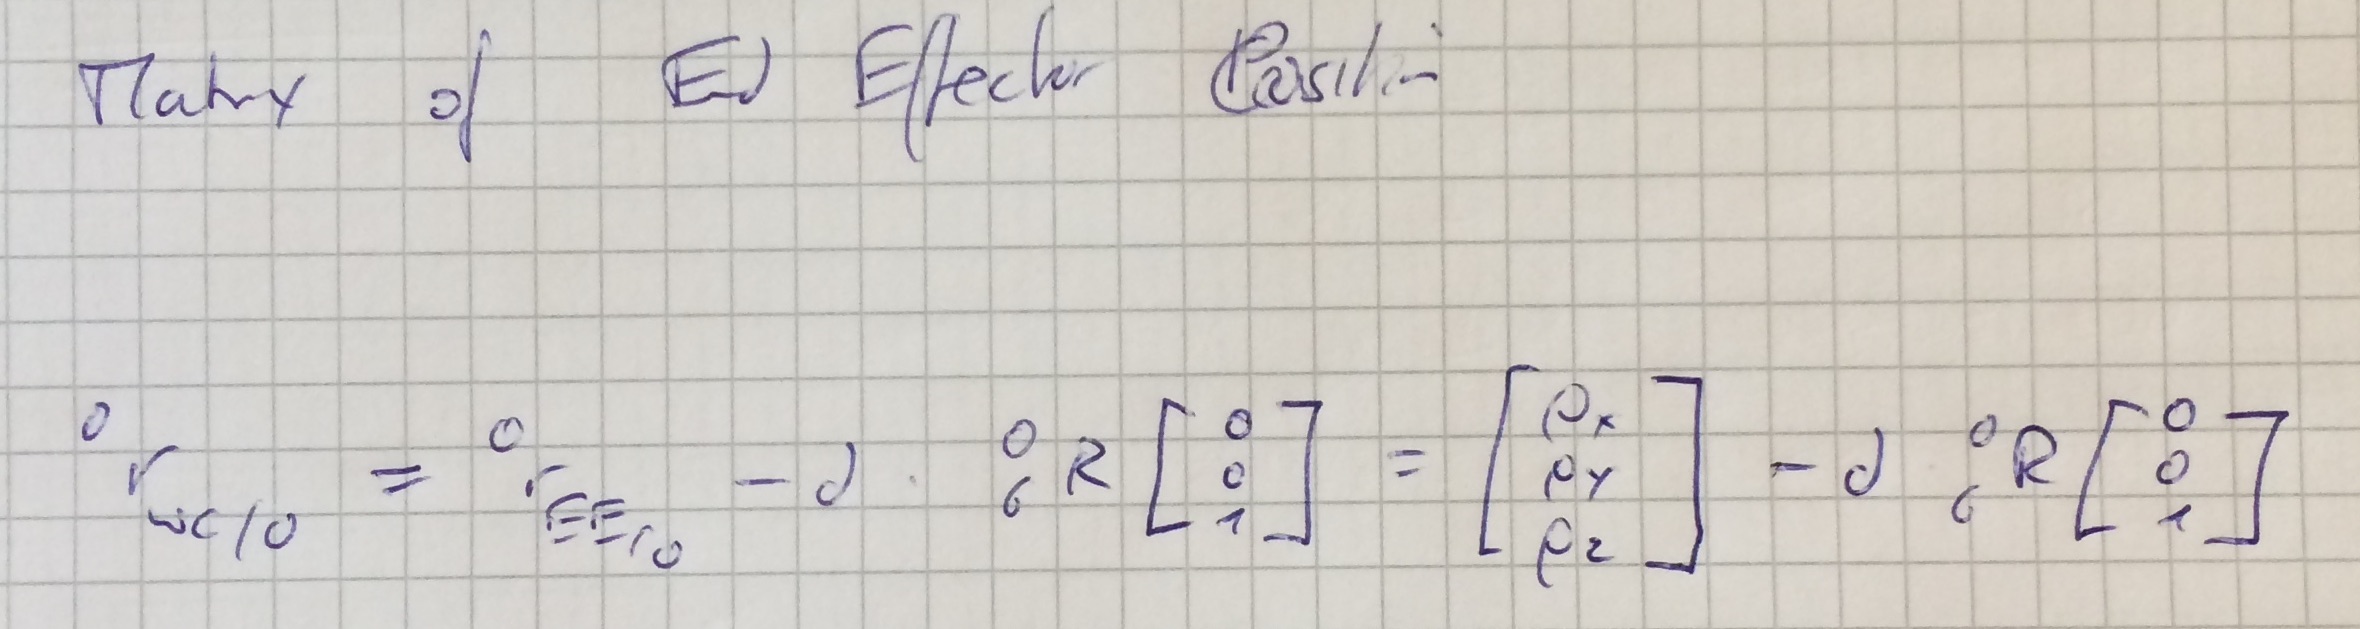 Matrix of End Effector Position
⁰r_WC/0 = ⁰r_EE/0 - d · ⁰₆R [0 0 1] = [Px Py Pz] - d ⁰₆R [0 0 1]